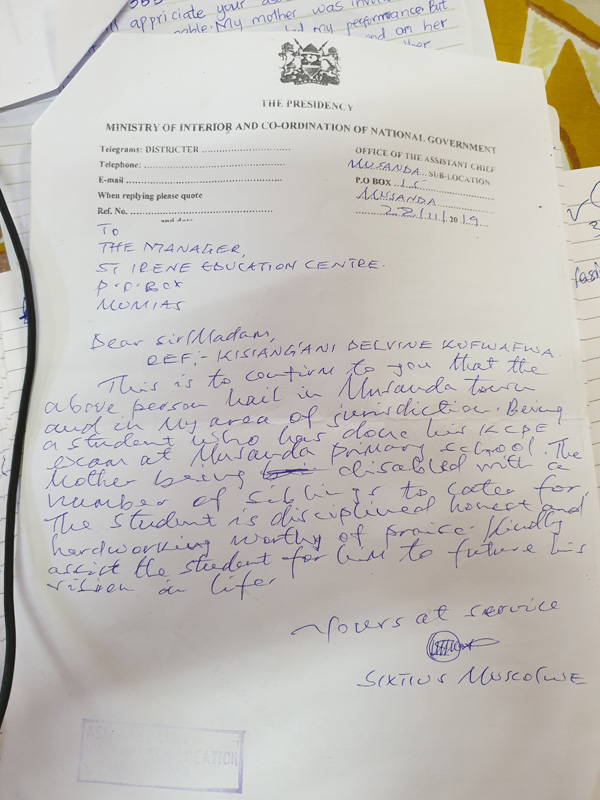 appriciate your
My mother was
my performance. But
and on her
THE PRESIDENCY
MINISTRY OF INTERIOR AND CO-ORDINATION OF NATIONAL GOVERNMENT
Telegrams: DISTRICTER ............................
Telephone: ............................
E-mail ............................
When replying please quote
Ref. No. ............................
and date
OFFICE OF THE ASSISTANT CHIEF
MUSANDA SUB-LOCATION
P.O BOX ..15
MUSANDA
28/11/2019
TO
THE MANAGER,
ST IRENE EDUCATION CENTRE.
P.O.BOX
MUMIAS
Dear sir/Madam,
REF:- KISIANG'ANI DELVINE KUFWAFWA.
This is to confirm to you that the
above person hail in Musanda town
and in my area of jurisdiction. Being
a student who has done his KCPE
exam at Musanda primary school. The
Mother being disabled with a
number of siblings to cater for,
The student is disciplined honest and
hardworking worthy of praise. Kindly
assist the student for him to future his
vision in life.
Yours at service
SIXTIUS